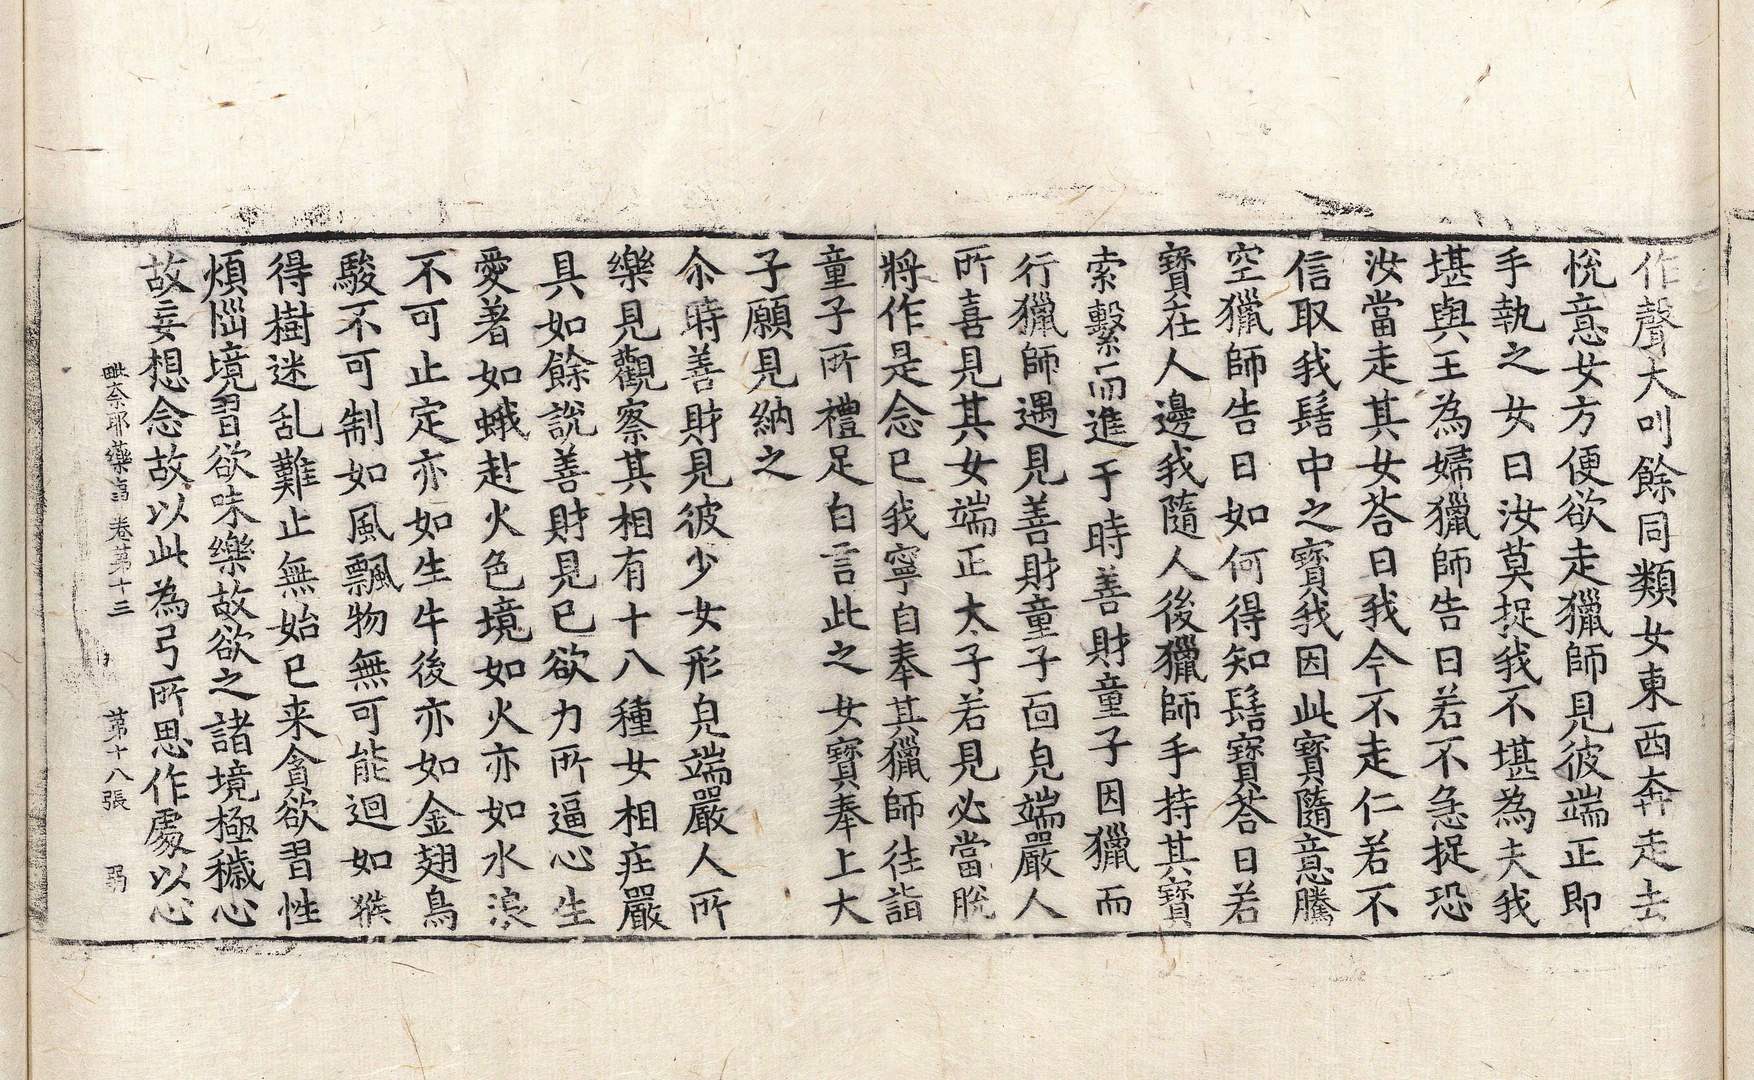 作聲大叫餘同類女東西奔走去
恱意女方便欲走獵師見彼端正即
手執之女曰汝莫捉我不堪為夫我
堪與王為婦獵師告曰若不急捉恐
汝當走其女荅曰我今不走仁若不
信取我髻中之寶我因此寶隨意騰
空獵師告曰如何得知髻寶荅曰若
寶在人邊我隨人後獵師手持其寶
索繫而進于時善財童子因獵而
行獵師遇見善財童子面皃端嚴人
所喜見其女端正太子若見必當脫
將作是念已我寧自奉其獵師往詣
童子所禮足白言此之女寶奉上大
子願見納之
尒時善財見彼少女形皃端嚴人所
樂見觀察其相有十八種女相莊嚴
具如餘說善財見已欲力所逼心生
愛著如蛾赴火色境如火亦如水浪
不可止定亦如生牛後亦如金翅鳥
駿不可制如風飄物無可能迴如猴
得樹迷乱難止無始已来貪欲習性
煩惱境習欲味樂故欲之諸境極穢心
故妄想念故以此為弓所思作處以心
毗奈耶藥事卷第十三 第十八張 弱